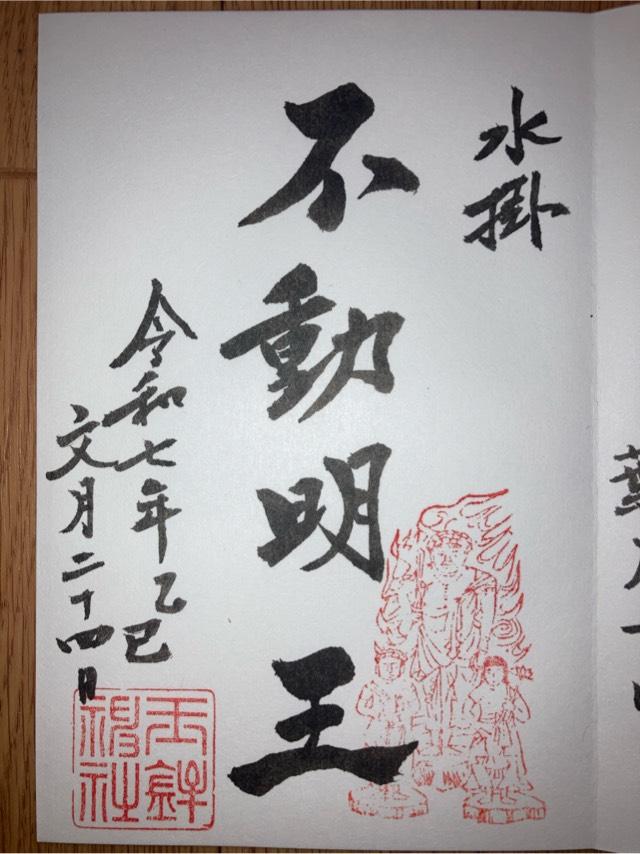 水掛
不動明王
令和七年乙巳
文月二十四日
玉鉾
神社